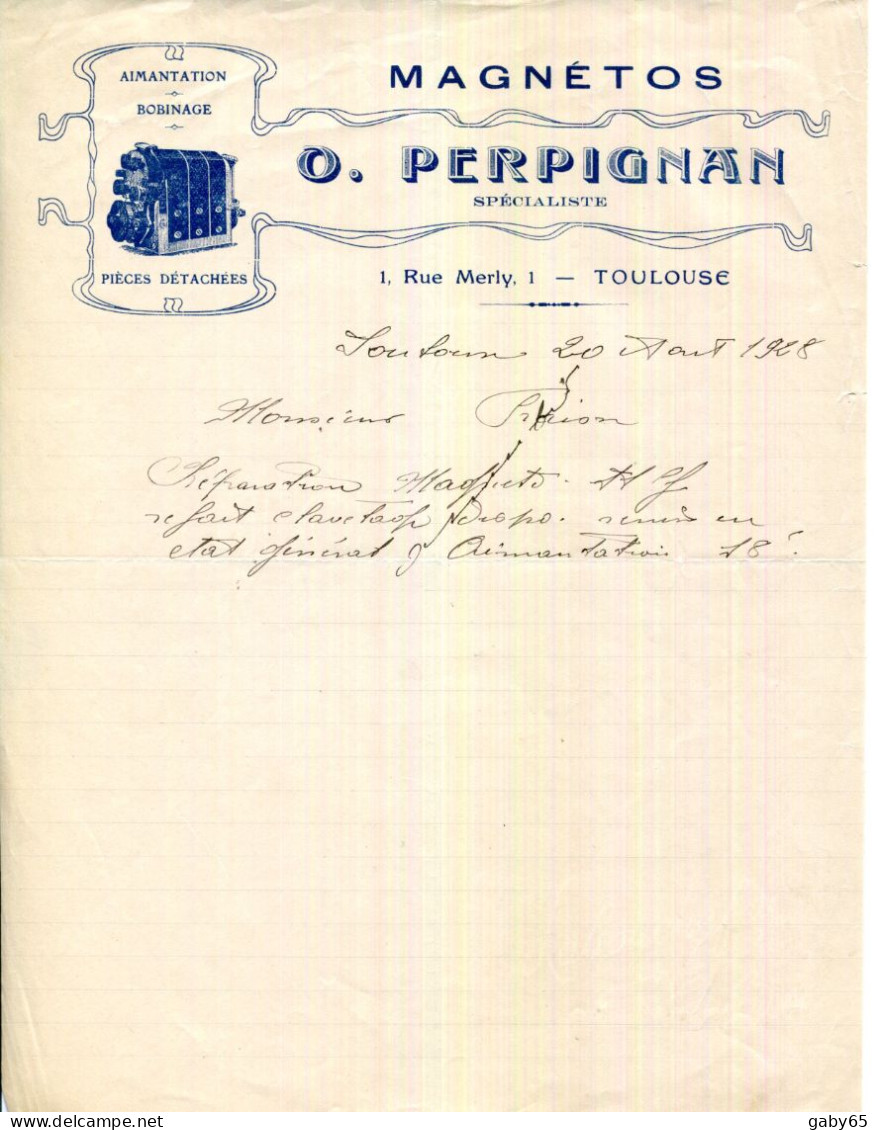 AIMANTATION
BOBINAGE
PIÈCES DÉTACHÉES
MAGNÉTOS
O. PERPIGNAN
SPÉCIALISTE
1, Rue Merly, 1 — TOULOUSE
20 Aout 1928
Monsieur
Réparation Magneto
refait remis en
etat général Aimantation 78
gaby65